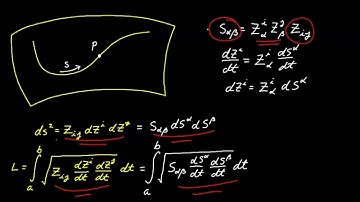 P
S →
· S_{αβ} = Z^i_α Z^j_β Z_{ij}
dZ^i/dt = Z^i_α dS^α/dt
dZ^i = Z^i_α dS^α
ds² = Z_{ij} dZ^i dZ^j = S_{αβ} dS^α dS^β
L = ∫_a^b √(Z_{ij} dZ^i/dt dZ^j/dt) dt = ∫_a^b √(S_{αβ} dS^α/dt dS^β/dt) dt